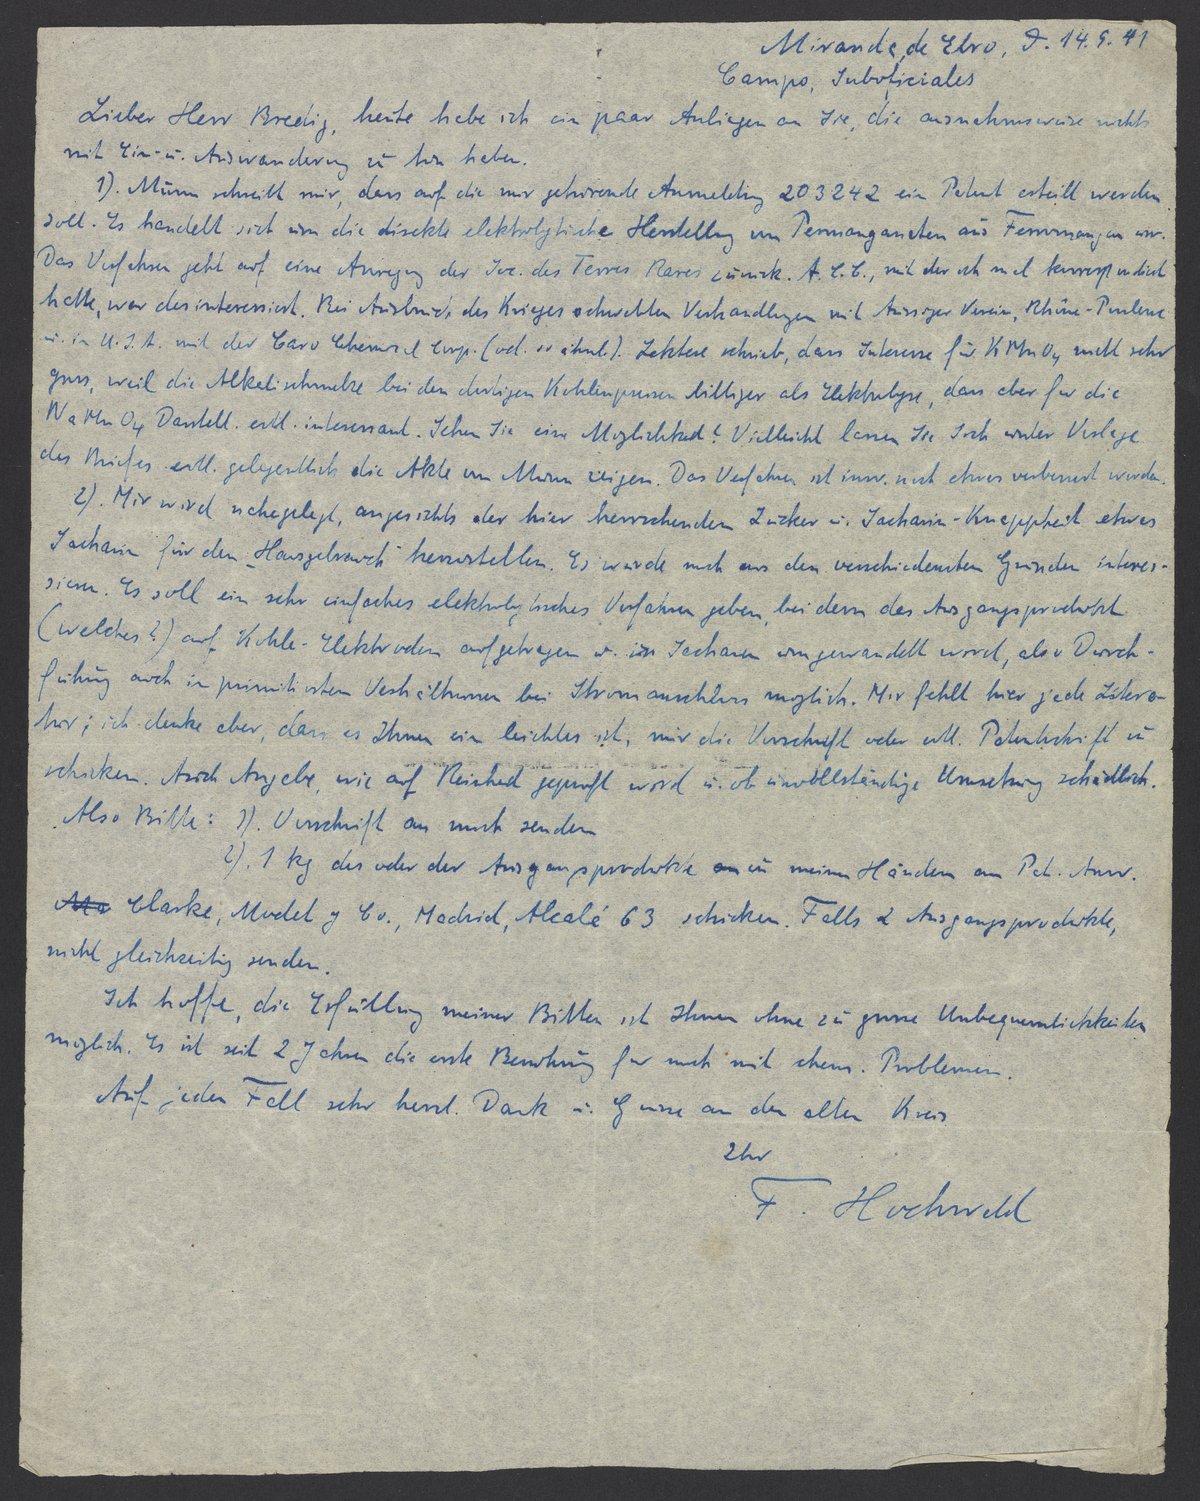 Miranda de Ebro, d. 14.9.41
Campo, Suboficiales
Lieber Herr Bredig, heute habe ich ein paar Anliegen an Sie, die ausnahmsweise nichts
mit Ein- u. Auswanderung zu tun haben.
1). Munn schreibt mir, dass auf die mir gehörende Anmeldung 203242 ein Patent erteilt werden
soll. Es handelt sich um die direkte elektrolytische Herstellung von Permanganaten aus Ferromangan usw.
Das Verfahren geht auf eine Anregung der Soc. des Terres Rares zurück. A.E.C., mit der ich mal korrespondiert
hatte, war desinteressiert. Bei Ausbruch des Krieges schwebten Verhandlungen mit Aussiger Verein, Rhône-Poulenc
u. in U.S.A. mit der Caro Chemical Corp. (od. so ähnl.). Letztere schrieb, dass Interesse für KMnO4 nicht sehr
gross, weil die Alkalischmelze bei den dortigen Kohlenpreisen billiger als Elektrolyse, dass aber für die
NaMnO4 Darstell. evtl. interessant. Sehen Sie eine Möglichkeit? Vielleicht lassen Sie sich unter Vorlage
des Briefes evtl. gelegentlich die Akte von Munn zeigen. Das Verfahren ist inzw. noch etwas verbessert worden.
2). Mir wird nahegelegt, angesichts der hier herrschenden Zucker u. Sacharin-Knappheit etwas
Sacharin für den "Hausgebrauch" herzustellen. Es würde mich aus den verschiedensten Gründen interes-
sieren. Es soll ein sehr einfaches elektrolytisches Verfahren geben, bei dem das Ausgangsprodukt
(welches?) auf Kohle-Elektroden aufgetragen u. in Sacharin umgewandelt wird, also Durch-
führung auch in primitivsten Verhältnissen bei Stromanschluss möglich. Mir fehlt hier jede Litera-
tur; ich denke aber, dass es Ihnen ein leichtes ist, mir die Vorschrift oder evtl. Patentschrift zu
schicken. Auch Angabe, wie auf Reinheit geprüft wird u. ob unvollständige Umsetzung schädlich.
Also Bitte: 1). Vorschrift an mich senden
2). 1 kg des oder der Ausgangsprodukte zu meinen Händen an Pat. Anw.
Clarke, Modet y Co., Madrid, Alcalá 63 schicken. Falls 2 Ausgangsprodukte,
nicht gleichzeitig senden.
Ich hoffe, die Erfüllung meiner Bitten ist Ihnen ohne zu grosse Unbequemlichkeiten
möglich. Es ist seit 2 Jahren die erste Berührung für mich mit chem. Problemen.
Auf jeden Fall sehr herzl. Dank u. Grüsse an den alten Kreis
Ihr
F. Hochwald